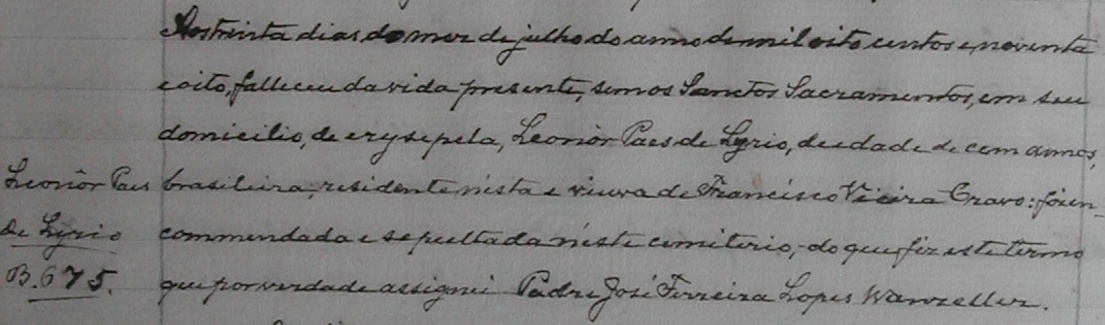 Aos trinta dias do mez de julho do anno de mil oito centos e noventa
e oito, falleceu da vida presente, sem os Sanctos Sacramentos, em seu
domicilio, de erysepela, Leonôr Paes de Lyrio, de edade de cem annos,
Leonôr Paes brasileira, residente nésta e viuva de Francisco Vieira Cravo: foi en-
de Lyrio commendada e sepultada néste cemiterio, do que fiz este termo
B. 675. que por verdade assignei Padre José Ferreira Lopes Wanzeller.